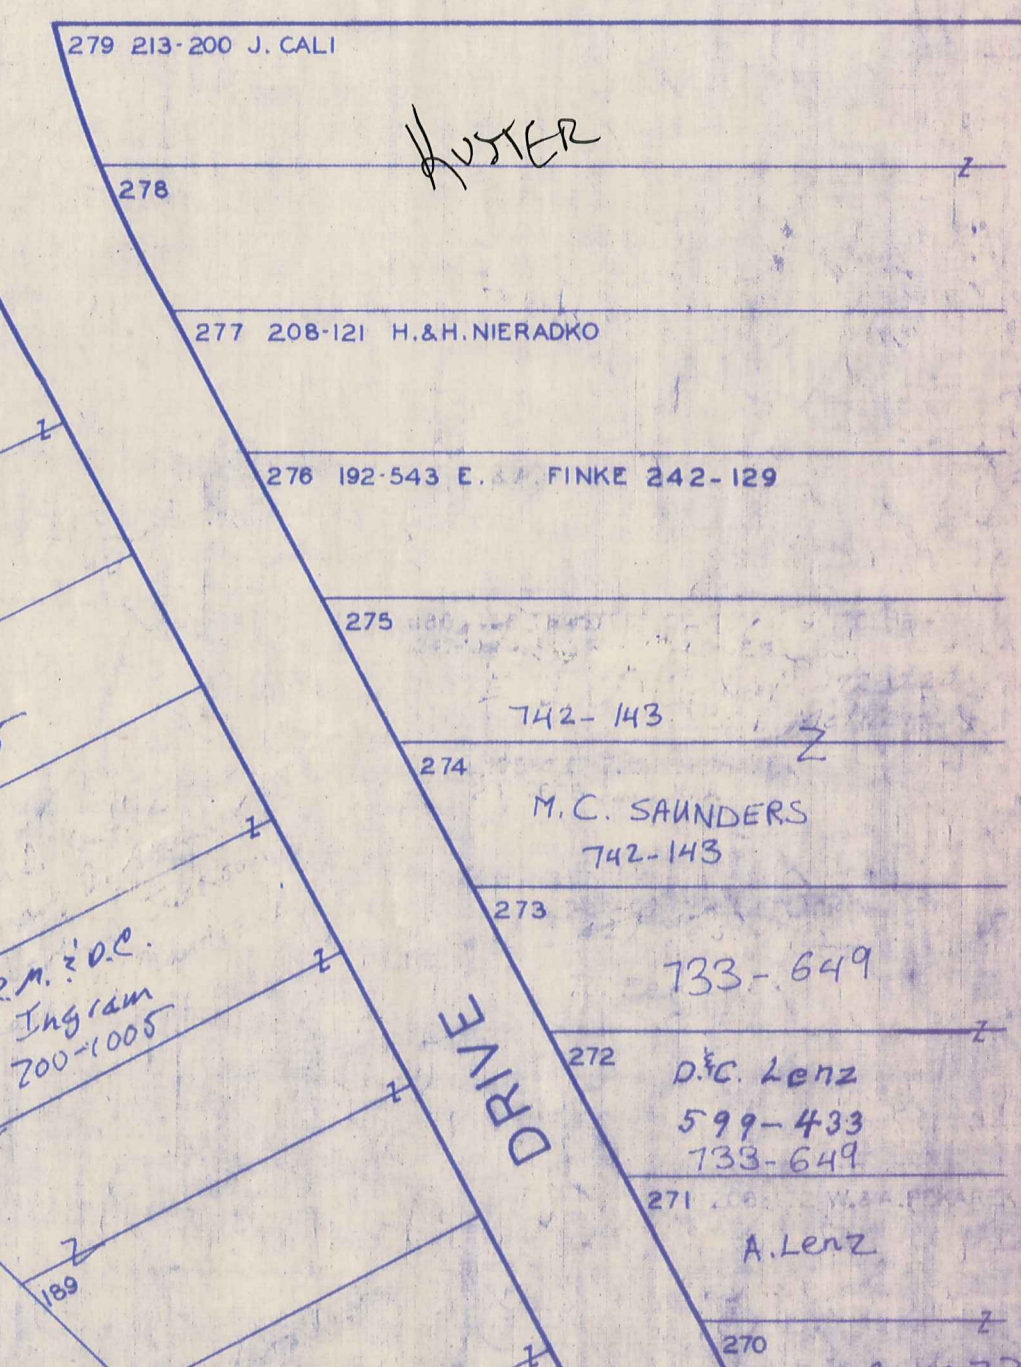 279 213-200 J. CALI
KUSTER
278
277 208-121 H.&H. NIERADKO
276 192-543 E. FINKE 242-129
275
742-143
274
M.C. SAUNDERS
742-143
273
733-649
272
D.&C. Lenz
599-433
733-649
271
A. Lenz
270
DRIVE
M. & D.C.
Ingram
700-1005
189